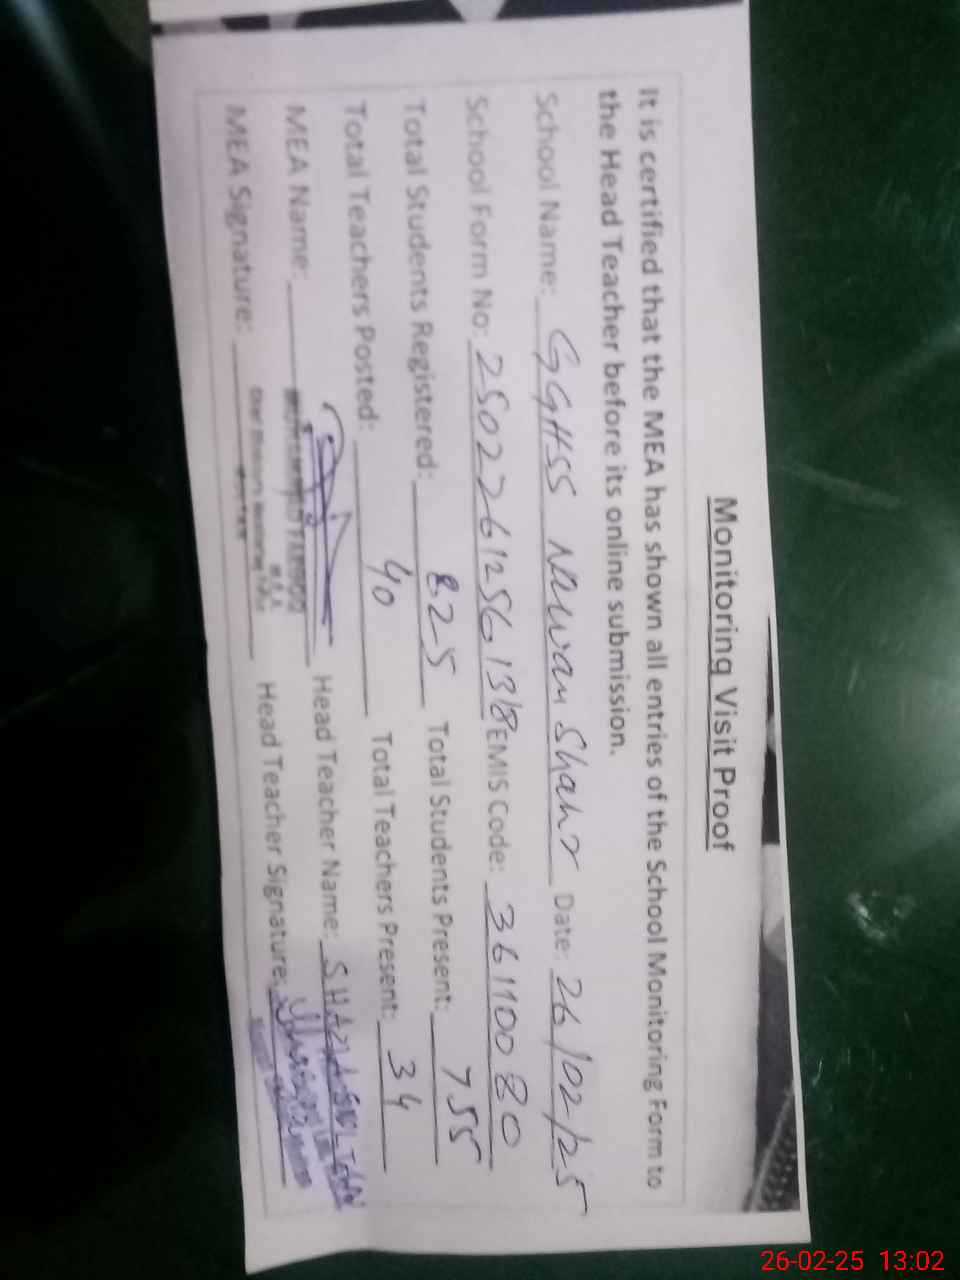 Monitoring Visit Proof
It is certified that the MEA has shown all entries of the School Monitoring Form to
the Head Teacher before its online submission.
School Name: GGHSS Newan Shahr Date: 26/02/25
School Form No: 25022612561318 EMIS Code: 36110080
Total Students Registered: 825 Total Students Present: 755
Total Teachers Posted: 40 Total Teachers Present: 34
MEA Name: Head Teacher Name: SHAZIA
MEA Signature: Head Teacher Signature:
26-02-25 13:02